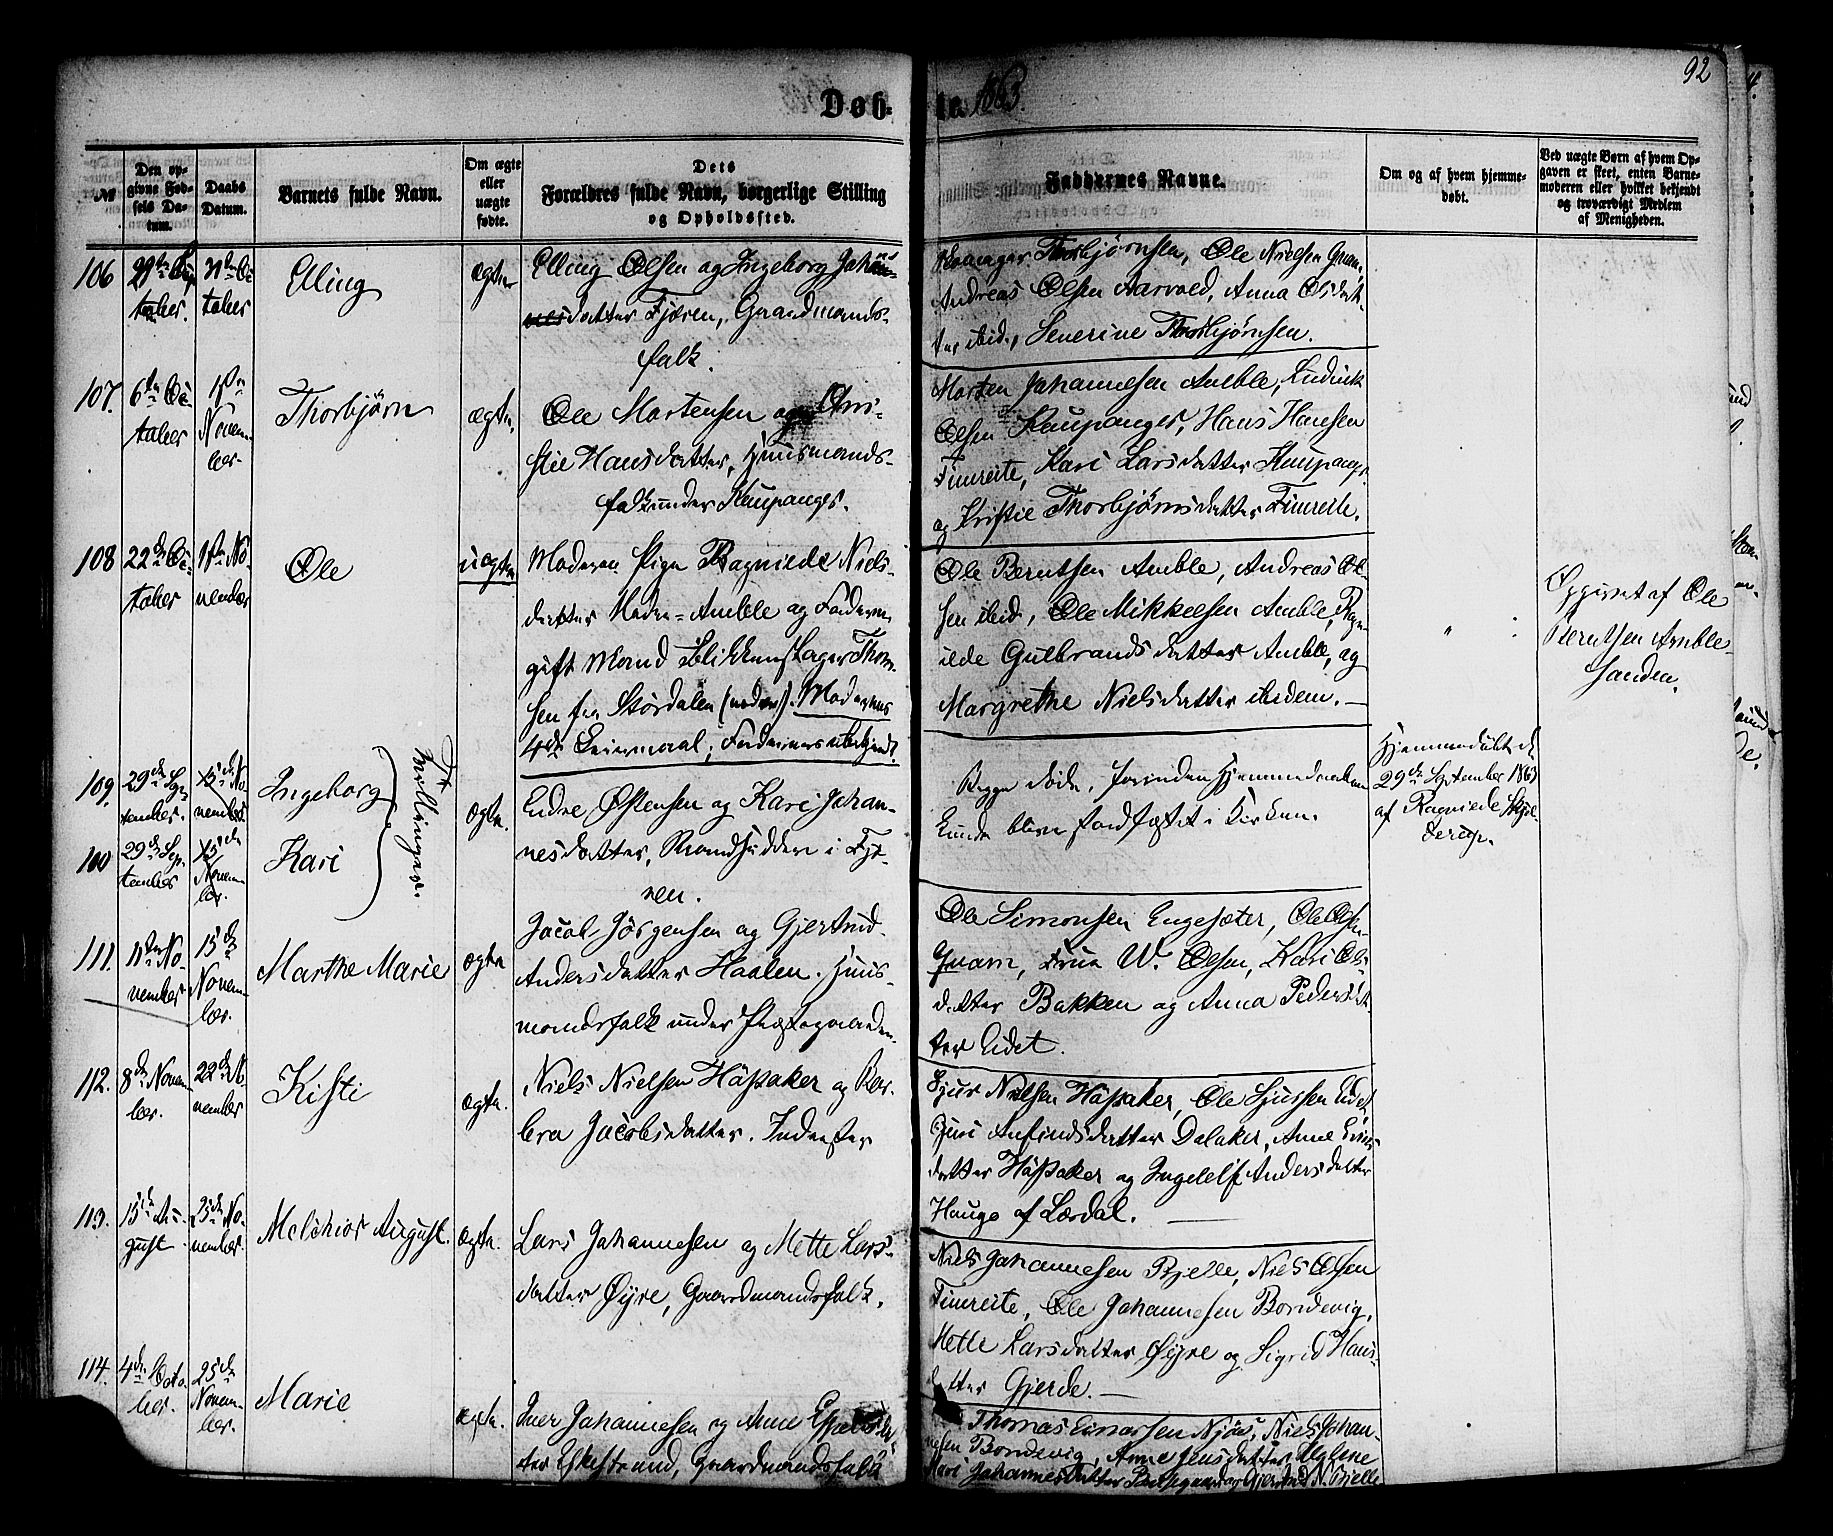 92
Døbte. 1863.
№
Den opgivne Fødsels Datum.
Daabs Datum.
Barnets fulde Navn.
Om ægte eller uægte fødte.
Dets Forældres fulde Navn, borgerlige Stilling og Opholdssted.
Faddernes Navne.
Om og af hvem hjemmedøbt.
Ved uægte Børn af hvem Opgaven er skeet, enten Barnemoderen eller hvilket bekjendt og troværdigt Medlem af Menigheden.
106
tober.
tober
Elling
Elling Olsen og Ingeborg Johan-
nesdatter Fjæren, Gaardmands-
folk.
Thorbjørnsen, Ole Nielsen Qvam,
Andreas Olsen Aarvold, Anna Olsdat-
ter ibid., Severine Thorbjørnsen.
107.
6te Oc-
tober
1ste
Novem-
ber.
Thorbjørn
ægte.
Ole Mortensen og Chri-
stie Hansdatter, Huusmands-
folk under Kaupanger.
Morten Johannesen Amble, Ludvik
Olsen Kaupanger, Hans Hansen
Fimreite, Kari Larsdatter Kaupanger
og Kristie Thorbjørnsdatter Fimreite.
108
22de Oc-
tober
1ste No-
vember
Ole
uægte
Moderen Pige Ragnilde Niels-
datter Nedre-Amble og Faderen
gift Mand Blikkenslager Thom-
sen fra Stördalen
4de Leiermaal, Faderens ubekjendt.
Ole Berntsen Amble, Andreas Ol-
sen ibid, Ole Mikkelsen Amble, Ragn-
ilde Gulbrandsdatter Amble, og
Margrethe Nielsdatter ibidem. —
Opgivet af Ole
Berntsen Amble-
sanden.
109.
29de Sep-
tember.
15de No-
vember
Ingeborg
Tvillinger.
ægte.
Endre Østensen og Kari Johan-
nesdatter, Strandsiddere i Fjæ-
ren.
Begge døde, forinden Hjemmedaaben
kunde blive stadfæstet i Kirken.
Hjemmedøbt d.
29de September 1863
af Ragnilde Skjel-
derup.
100
29de Sep-
tember
15de
Novem-
ber.
Kari
111.
11te No-
vember
15de
Novem-
ber.
Marthe Marie
ægte
Jacob Jörgensen og Gjertrud
Andersdatter Haalen. Huus-
mandsfolk under Præstegaarden
Ole Simonsen Engesæter, Ole Olsen
Qvam, Frue W. Olsen, Kari Ols-
datter Bakken og Anna Pedersdat-
ter Eidet.
112.
8de Novem-
ber.
22de No-
vember
Kisti
ægte.
Niels Nielsen Håsaker og Bar-
bra Jacobsdatter. Inderster
Sjur Nielsen Håsaker, Ole Sjursen Eidet,
Guri Anfindsdatter Dalaker, Anne
datter Håsaker og Ingelef Andersdatter
Hauge af Lærdal. —
113.
15de Au-
gust
25de No-
vember.
Melchior August.
ægte.
Lars Johannesen og Mette Lars-
datter Øyre, Gaardmandsfolk.
Niels Johannesen Bjelle, Niels Olsen
Fimreite, Ole Johannesen Bondevig,
Mette Larsdatter Øyre og Sigrid Hans-
datter Gjerde. —
114.
4de Octo-
ber.
25de
Novem-
ber.
Marie
ægte.
Iver Johannesen og Anne
ter Eskestrand, Gaardmandsfolk
Thomas Einarsen Njøs, Niels Johan-
nesen Bondevig, Anne Jensdatter
Mari Johannesdatter Præstegaarden Gjertrud N. Bjelle